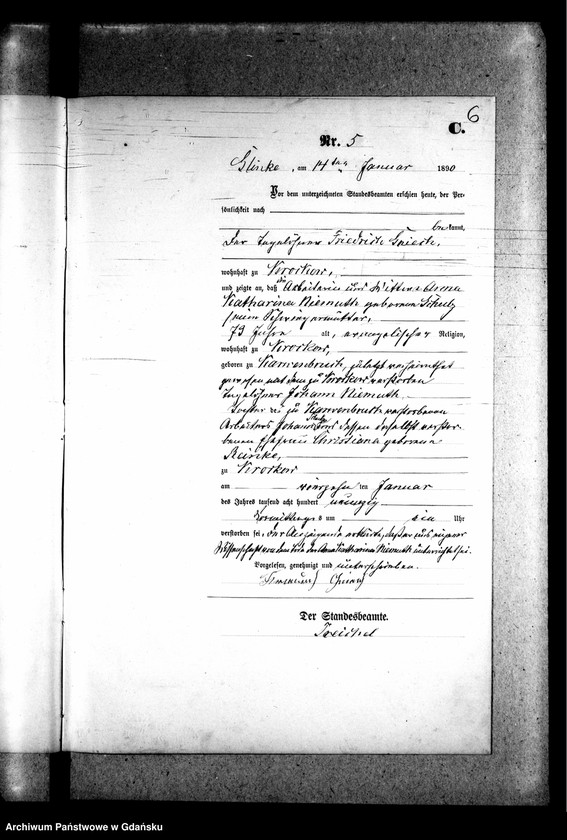 6
C.
Nr. 5
Glinke, am 14ten Januar 1890
Vor dem unterzeichneten Standesbeamten erschien heute, der Per-
sönlichkeit nach
be kannt,
der Tagelöhner Friedrich
wohnhaft zu
und zeigte an, daß die Arbeiterin und Wittwe Anna
Katharina Niemuth geborene Schulz
seine Schwiegermutter,
73 Jahre alt, evangelischer Religion,
wohnhaft zu
geboren zu zuletzt verheirathet
gewesen mit dem zu verstorbenen
Tagelöhner Johann Niemuth
Tochter des zu verstorbenen
Arbeiters Johann Schulz und dessen daselbst verstor-
benen Ehefrau Christiana geborene
zu
am vierzehnten Januar
des Jahres tausend acht hundert neunzig
Vormittags um ein Uhr
verstorben sei, der Anzeigende erklärte, daß er aus eigener
Wissenschaft von dem Tode der Anna Katharina Niemuth unterrichtet sei.
Vorgelesen, genehmigt und unterschrieben.
Der Standesbeamte.
Treichel
Archiwum Państwowe w Gdańsku